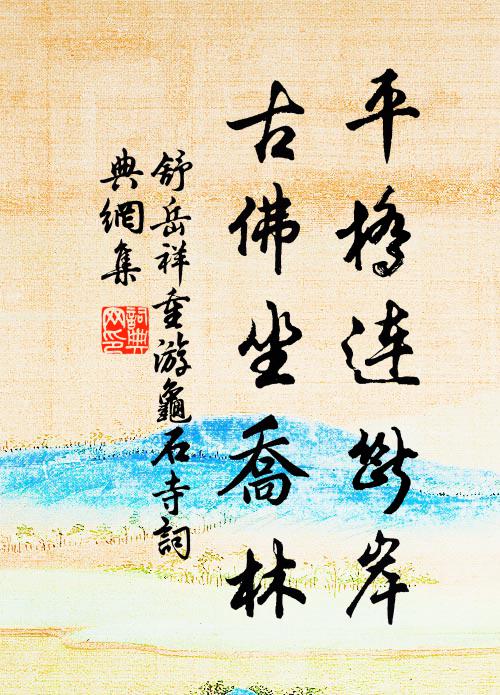 平橋連斷岸
古佛坐喬林
舒岳祥重游龜石寺詞
典網集
詞典网印